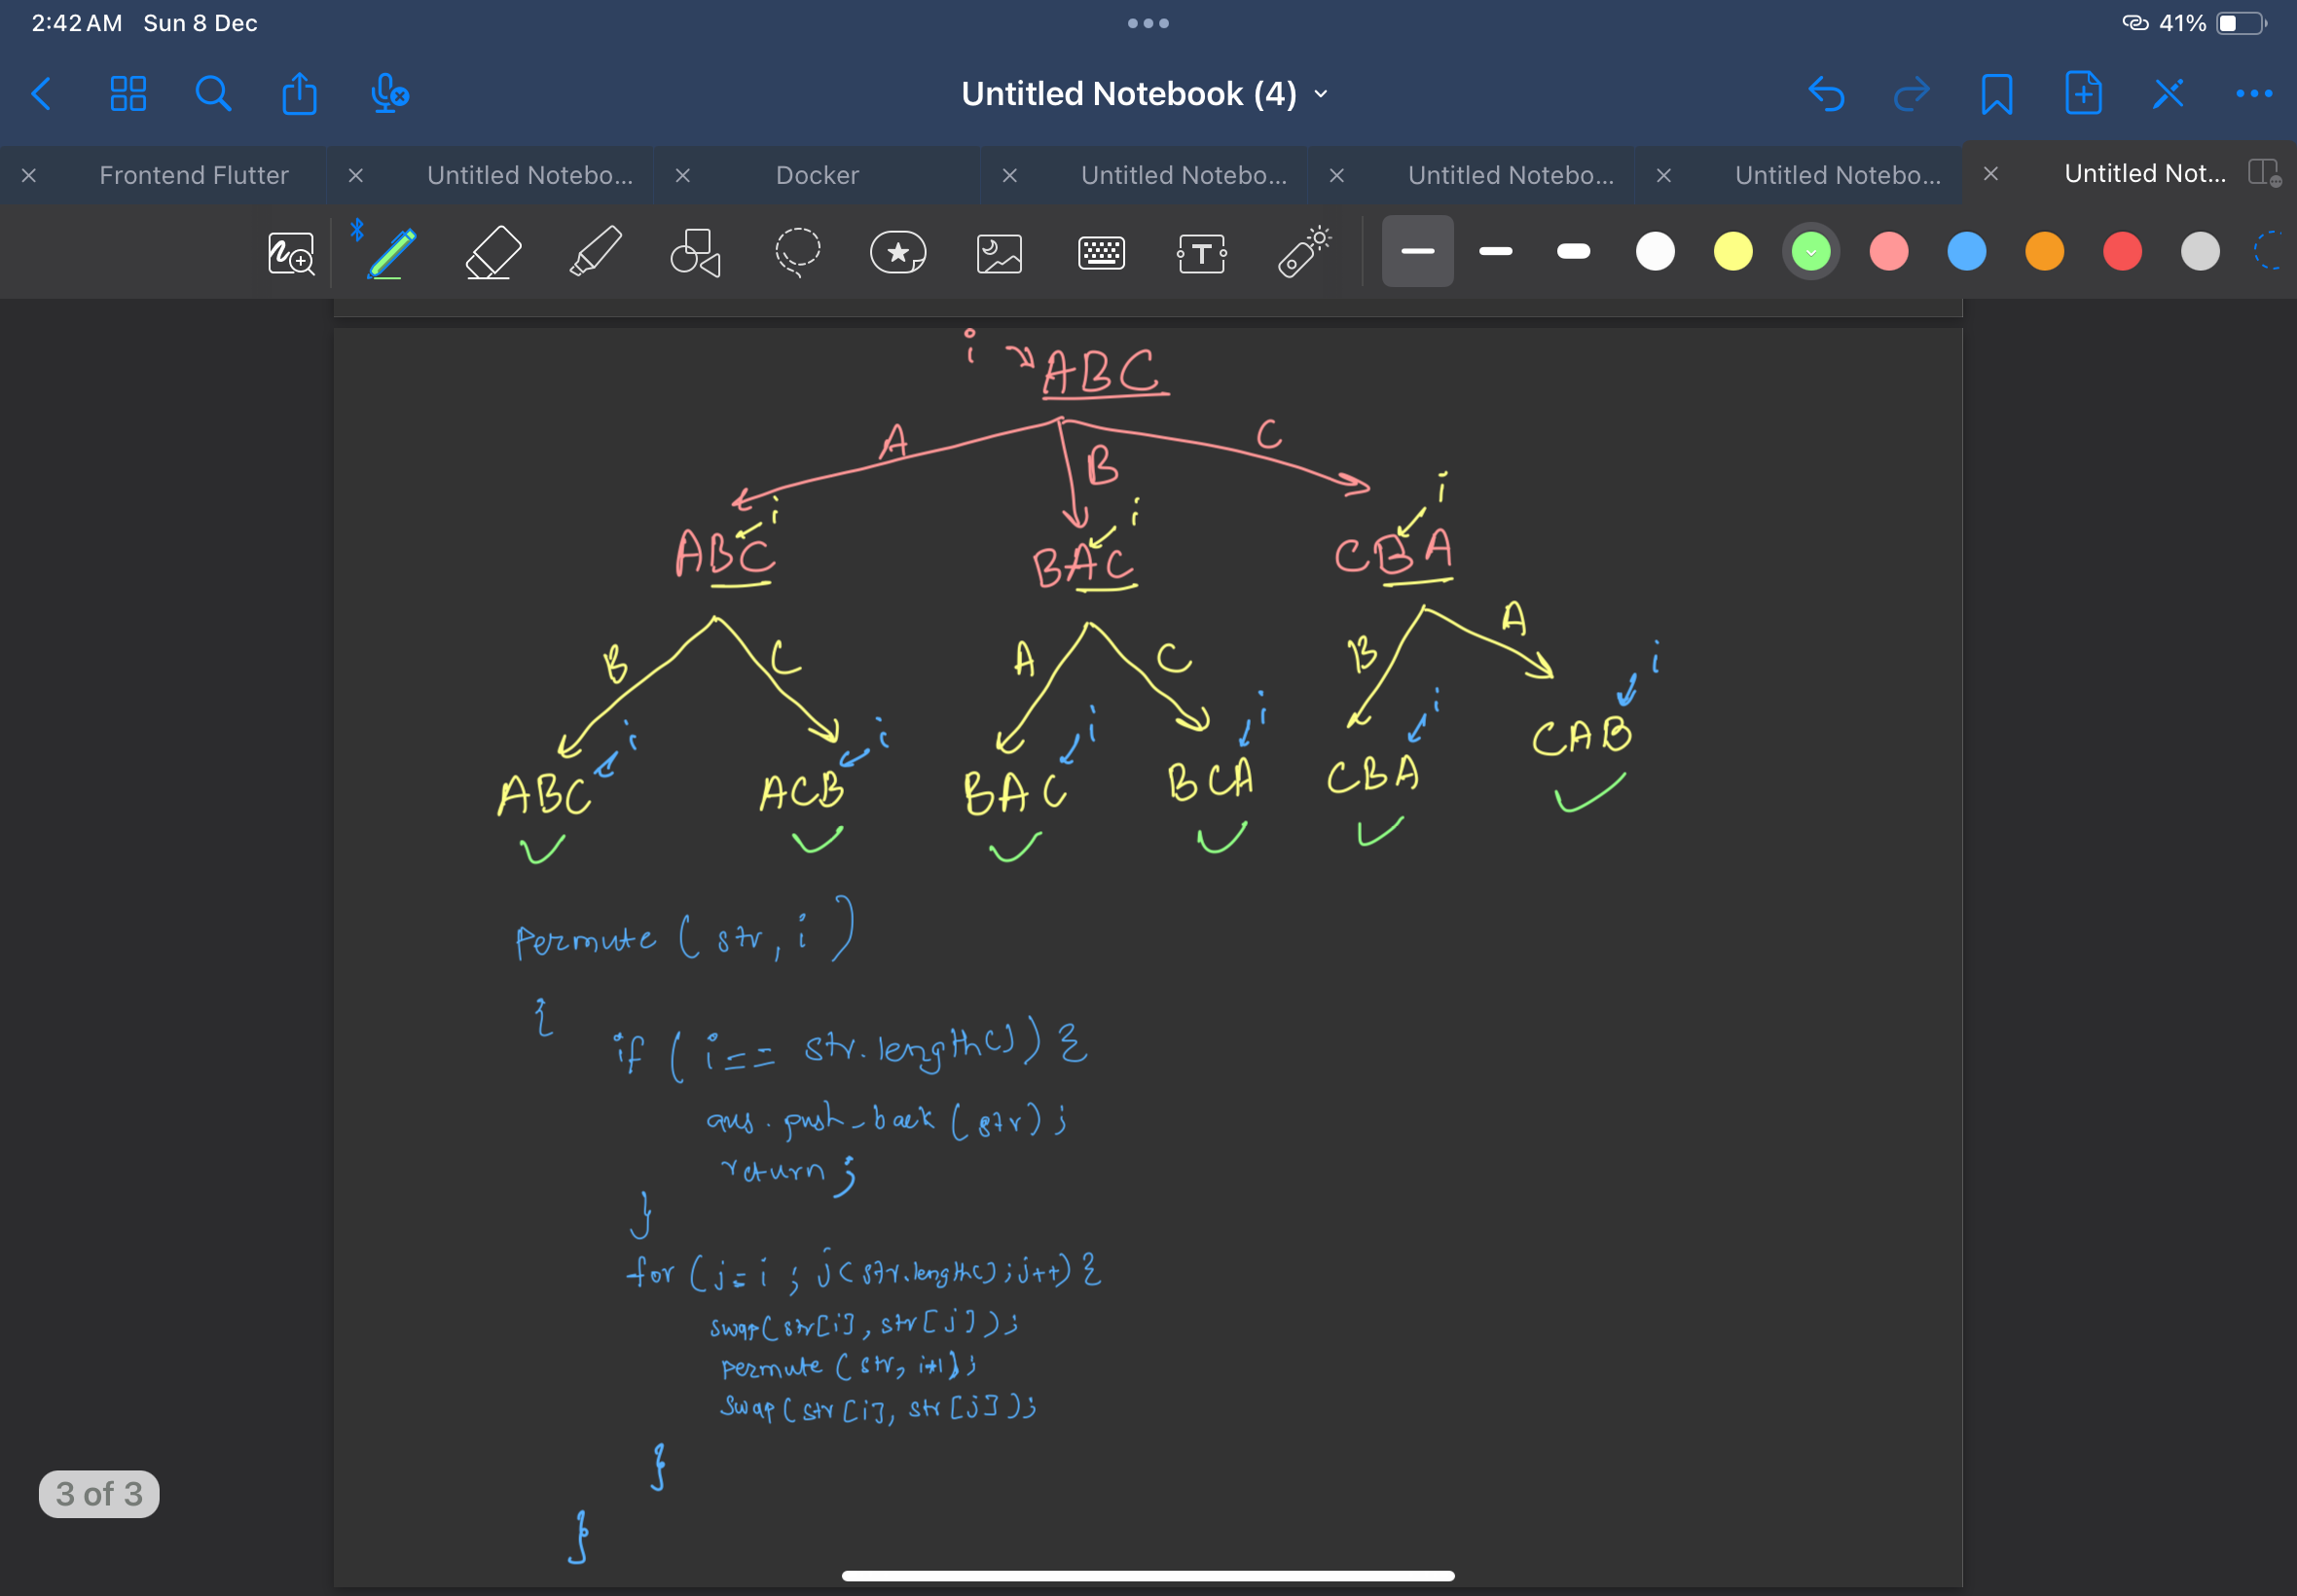 2:42 AM Sun 8 Dec
41%
Untitled Notebook (4)
Frontend Flutter
Untitled Notebo...
Docker
Untitled Notebo...
Untitled Notebo...
Untitled Notebo...
Untitled Not...
T
i ABC
A B C
i i i
ABC BAC CBA
B C A C B A
i i i i i i
ABC ACB BAC BCA CBA CAB
Permute (str, i)
{
if (i == str.length()) {
ans.push_back(str);
return;
}
for (j=i; j<str.length(); j++) {
swap(str[i], str[j]);
permute (str, i+1);
swap(str[i], str[j]);
}
}
3 of 3